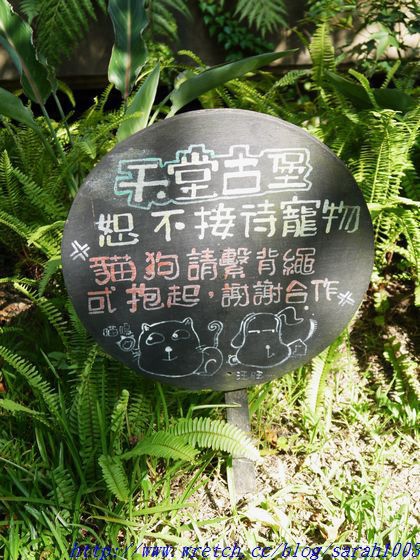 天堂古堡
恕不接待寵物
貓狗請繫背繩
或抱起，謝謝合作
喵嗚
汪汪
http://www.wretch.cc/blog/sarah100s